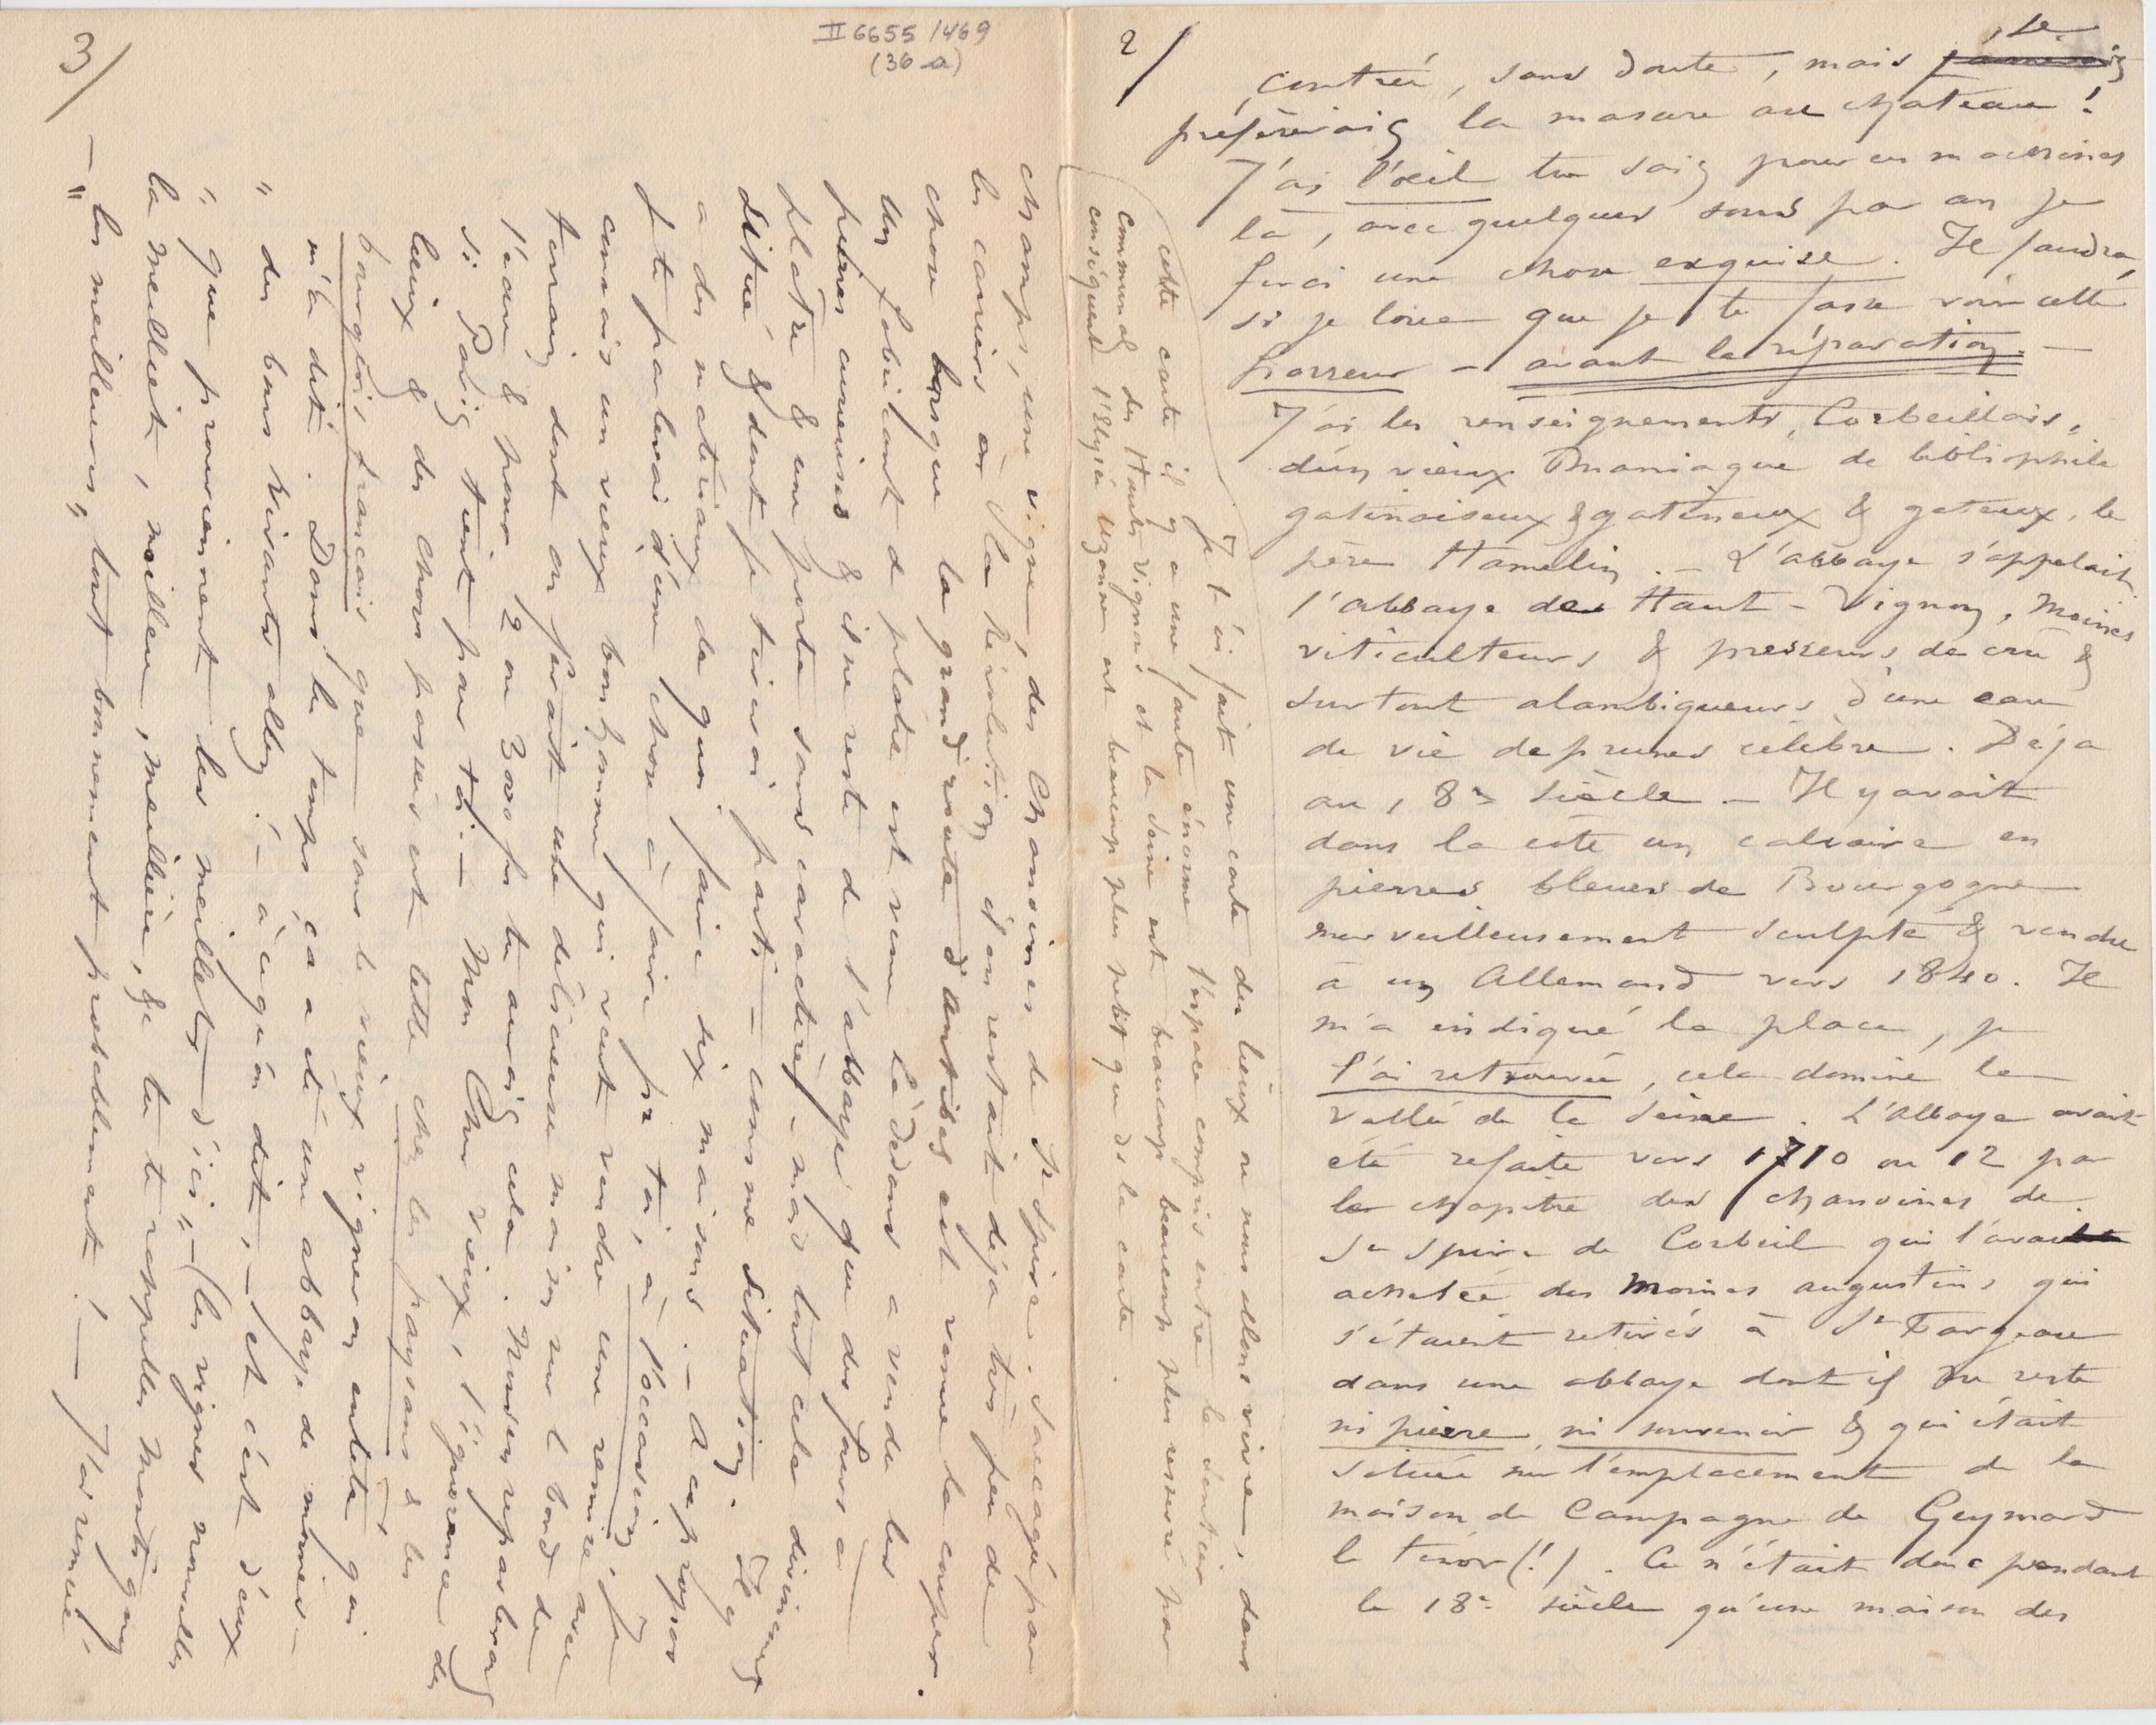 2/
contrée, sans doute, mais je
préfèrerais la masure au château !
J'ai l'oeil tu sais pour ces machines
là, avec quelques sous par an je
ferai une chose exquise. Il faudra,
si je loue que je te fasse voir cette
horreur - avant la réparation. -
J'ai les renseignements, Corbeillois,
d'un vieux maniaque de bibliophile
gatinaiseux & gatineux & gateux, le
père Hamelin. - L'abbaye s'appelait
l'abbaye des Haut-Vignons, Moines
viticulteurs & presseurs de cru &
surtout alambiqueurs d'une eau
de vie de prunes célèbre. Déjà
au 18e siècle - Il y avait
dans la côte un calvaire en
pierres bleues de Bourgogne
merveilleusement sculpté & vendu
à un Allemand vers 1840. Il
m'a indiqué la place, je
l'ai retrouvée, cela domine la
vallée de la Seine. L'Abbaye avait
été refaite vers 1710 ou 12 par
le chapitre des chanoines de
St Spire de Corbeil qui l'avait
achetée des Moines augustins qui
s'étaient retirés à St Fargeau
dans une abbaye dont il ne reste
ni pierre, ni souvenir & qui était
située sur l'emplacement de la
maison de Campagne de Geymard
le tenor (!). Ce n'était donc pendant
le 18e siècle qu'une maison des
Je t'ai fait une carte des lieux où nous allons vivre, dans
cette carte il y a une faute énorme l'espace compris entre le sentier
communal des Hauts Vignons et la Seine est beaucoup beaucoup plus resserré par
conséquent l'Elysée Uzanne est beaucoup plus petit que ds la carte.
II 6655/469
(36 a)
3/
champs, une vigne, des Chanoines de St Spire. Saccagé par
les carriers à la Révolution il en restait déjà très peu de
chose lorsque la grand'route d'Antibes est venue la couper.
Un fabricant de plâtre est venu là dedans a vendu les
pierres curieuses & il ne reste de l'abbaye que des fours à
plâtre & une porte sans caractère, - mais tout cela divinement
situé & dont je tirerai parti - comme situation. Il y
a des matériaux de quoi faire six maisons. - A ce propos
je te parlerai d'une chose à faire pr toi, à l'occasion, je
connais un vieux bonhomme qui veut vendre une remise avec
terrain dont on ferait une délicieuse maison sur le bord de
l'eau & pour 2 ou 3000 frs tu aurais cela. Nous en reparlerons
si Paris tient par toi. - Mon Cher vieux, l'ignorance des
lieux & des choses passées est telle chez les paysans & les
bourgeois français que sans le vieux vigneron entêté qui
m'a dit. "Dans le temps ça a été une abbaye de moines -
" des bons vivants allez ! - à ce qu'on dit, - et c'est d'eux
" que proviennent les meilleley d'ici" - (les vignes nouvelles
la meilliet, meillier, meillière, & tu te rappelles Montigny
- "les meilleurs", tout bonnement probablement ! - J'ai remué